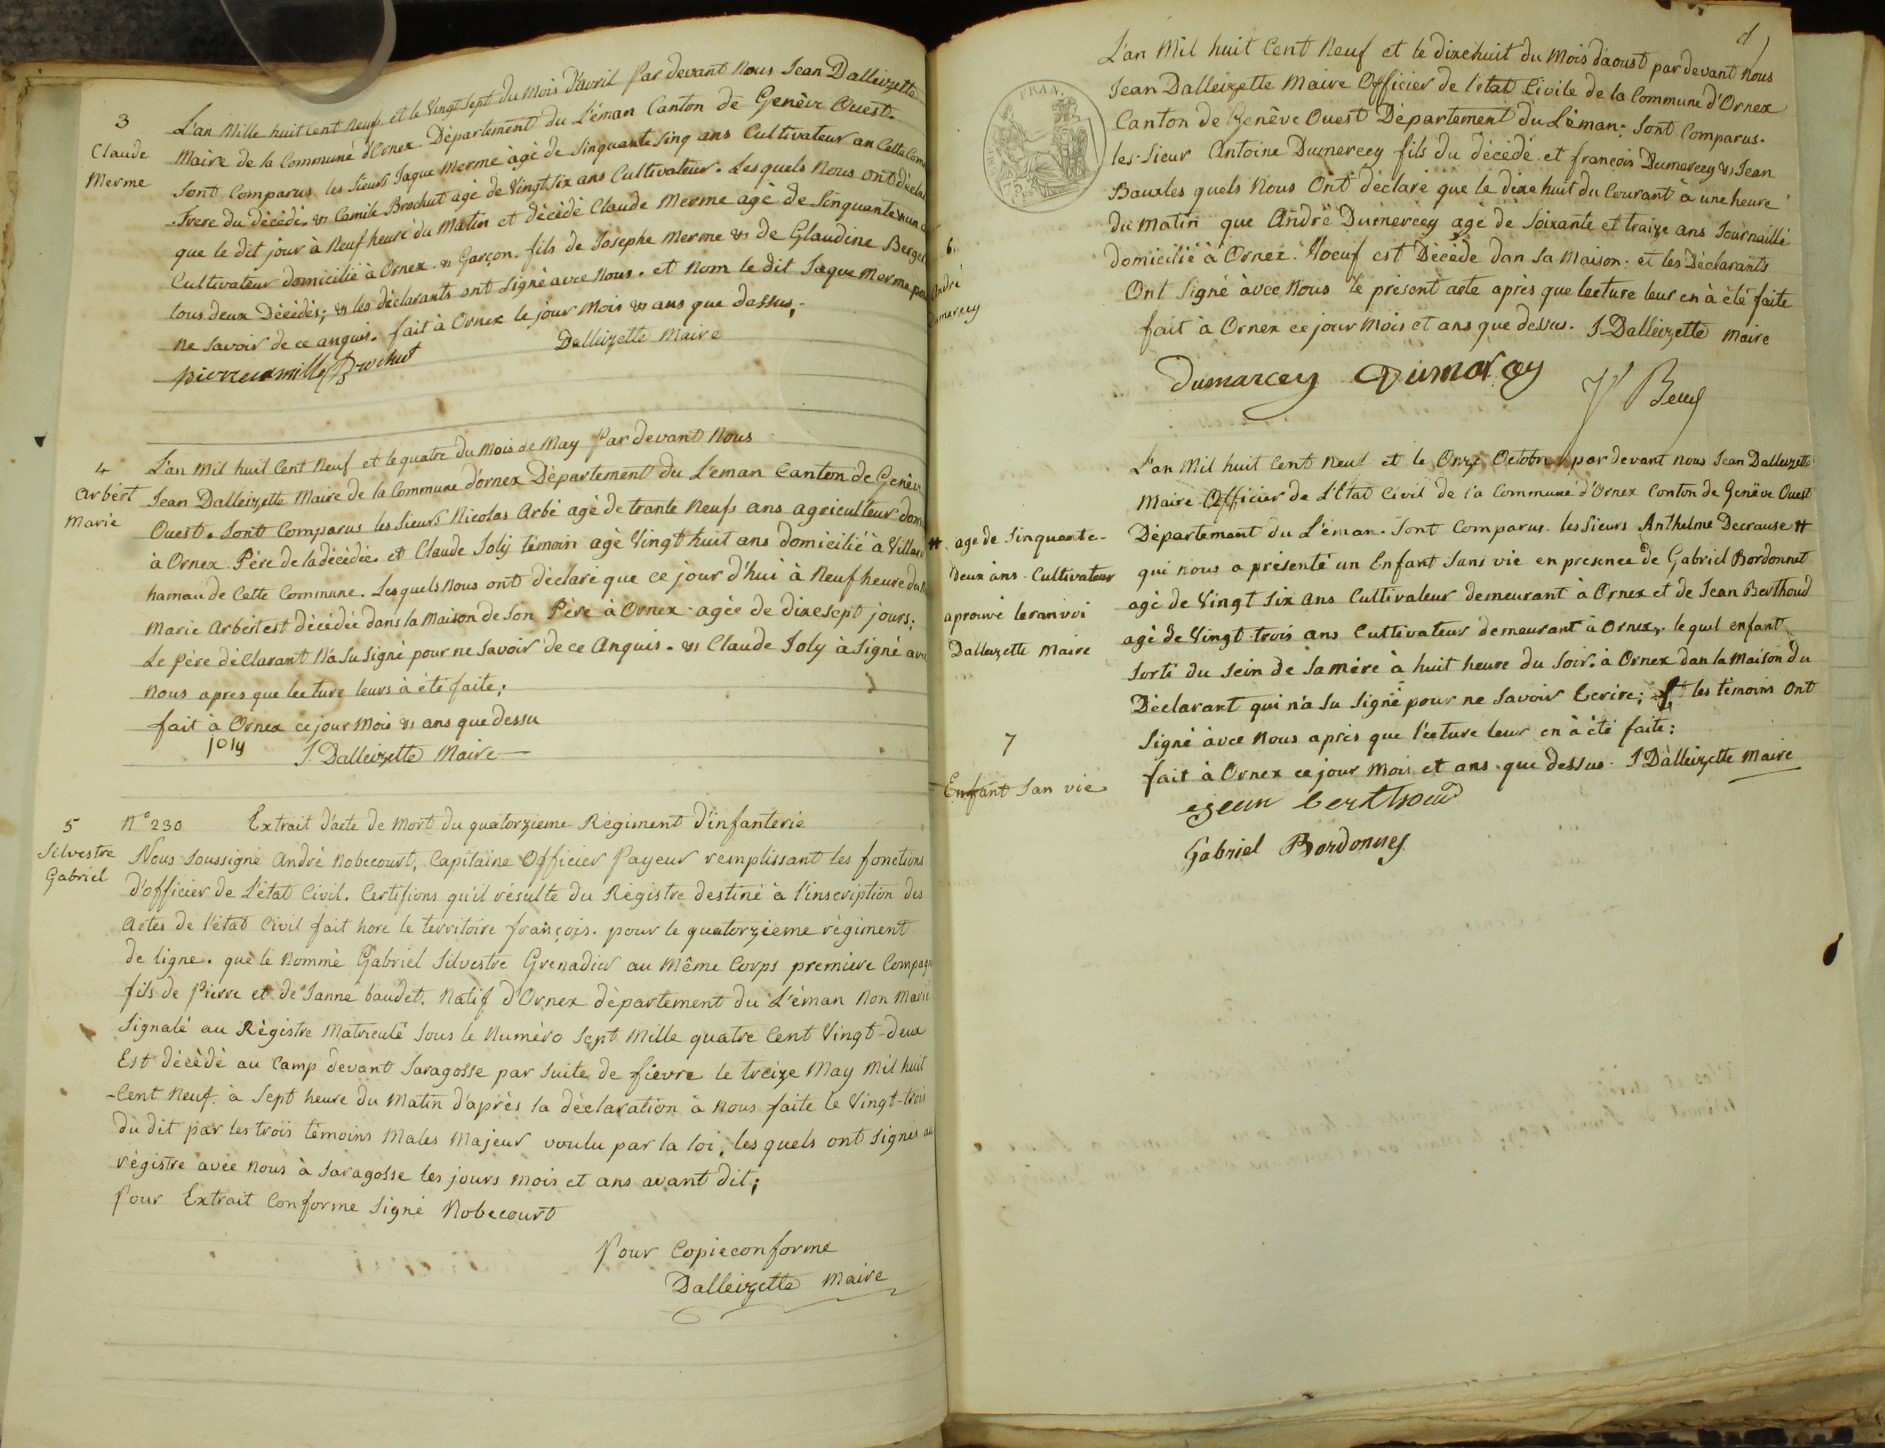 3
Claude
Merme
L'an Mille huit cent Neuf et le Vingt sept du Mois d'avril par devant Nous Jean Dalleizette
Maire de la Commune d'Ornex Département du L'éman Canton de Genêve Ouest.
Sont Comparus les Sieurs Jaque Merme àgé de Sinquante Sinq ans Cultivateur an Cette
Frere du décédé, & Camile Brochut agé de Vingt Six ans Cultivateur. Les quels Nous ont
que le dit jour à Neuf heure du Matin et décédé Claude Merme agé de Sinquante
Cultivateur domicilié à Ornex & Garçon. fils de Josephe Merme & de Glaudine
tous deux Décédés; & les déclarants ont Signé avec Nous. et Nom le dit Jaque Merme
Ne Savoir de ce anquis. fait à Ornex le jour Mois & ans que dessus,
Dalleizette Maire
pierre camille Brochut
4
Arbért
Marie
L'an Mil huit Cent Neuf et le quatre du Mois de May par devant Nous
Jean Dalleizette Maire de la Commune d'ornex Département du L'eman Canton de
Ouest. Sont Comparus les Sieurs Nicolas Arbé agé de trante Neufs ans agriculteur
à Ornex Pére de la décédée. et Claude Joly témoin agé Vingt huit ans domicilié à
hamau de Cette Commune. Lesquels Nous ont déclaré que ce jour d'hui à Neuf heure
Marie Arbért est décédée dans la Maison de Son Pére à Ornex agée de dixe Sept jours;
Le Pére déClarant N'a Su Signé pour ne Savoir de ce Anquis. & Claude Joly à Signé
Nous apres que lecture leurs à été faite;
fait à Ornex ce jour Mois & ans que dessu
joly J. Dalleizette Maire
5
Silvestre
Gabriel
N° 230 Extrait d'acte de Mort du quatorzieme Régiment d'infanterie
Nous Soussigné André Nobecourt, Capitaine Officier Payeur remplissant les fonctions
d'officier de L'état Civil. Certifions qu'il résulte du Régistre destiné à l'inscription des
Actes de l'état Civil fait hore le territoire françois. pour le quatorzieme régiment
de ligne. que le Nommé Gabriel Silvestre Grenadier au Même Corps premiere
fils de Pierre et de Janne baudet. Natif d'Ornex département du L'éman Non Marié
Signalé au Régistre Matriculé Sous le Numéro Sept Mille quatre Cent Vingt-deux
Est décédé au Camp devant Saragosse par Suite de fievre le treize May Mil huit
-Cent Neuf. à Sept heure du Matin d'après la déclaration à Nous faite le Vingt-trois
du dit par les trois témoins Males Majeur voulu par la loi, les quels ont Signés
régistre avec Nous à Saragosse les jours Mois et ans avant dit;
Pour Extrait Conforme Signé Nobecourt
Pour Copie conforme
Dalleizette Maire
FRAN.
6.
L'an Mil huit Cent Neuf et le dixehuit du Mois d'aoust par devant Nous
Jean Dalleizette Maire Officier de l'état Civile de la Commune d'Ornex
Canton de Genêve Ouest Département du L'éman; Sont Comparus.
les Sieur Antoine Dumercey fils du décédé et françois Dumercey & Jean
Baux les quels Nous Ont déclaré que le dixe huit du Courant à une heure
du Matin que André Dumercey agé de Soixante et traize ans Journaillé
domicilié à Ornex. Voeuf est Décédé dan Sa Maison. et les Déclarants
Ont Signé àvec Nous le présent acte après que lecture leur en à été faite
fait à Ornex ce jour Mois et ans que dessus. J. Dalleizette Maire
dumarcey Dumarcey
L'an Mil huit Cent Neuf et le Onze Octobre par devant Nous Jean Dalleizette
Maire Officier de L'état Civil de la Commune d'Ornex Conton de Genêve Ouest
Département du L'éman. Sont Comparus. les Sieurs Anthelme Decrause #
# age de Sinquante-
Deux àns. Cultivateur
aprouvé le ranvoi
Dalleizette Maire
qui nous a présenté un Enfant Sans vie en presence de Gabriel Bordonnet
agé de Vingt Six ans Cultivateur demeurant à Ornex et de Jean Berthoud
agé de Vingt-trois ans Cultivateur demeurant à Ornex, lequel enfant
Sorti du Sein de Sa mére à huit heure du Soir. à Ornex dan la Maison du
Déclarant qui n'à Su Signé pour ne Savoir Ecrire; Et les témoins Ont
Signé àvec Nous après que l'ecture leur en à été faite;
fait à Ornex ce jour Mois et ans que dessus. J Dalleizette Maire
7
Enfant San vie
Jean berthoud
Gabriel Bordonnes